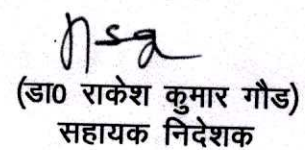 (डा0 राकेश कुमार गौड)
सहायक निदेशक